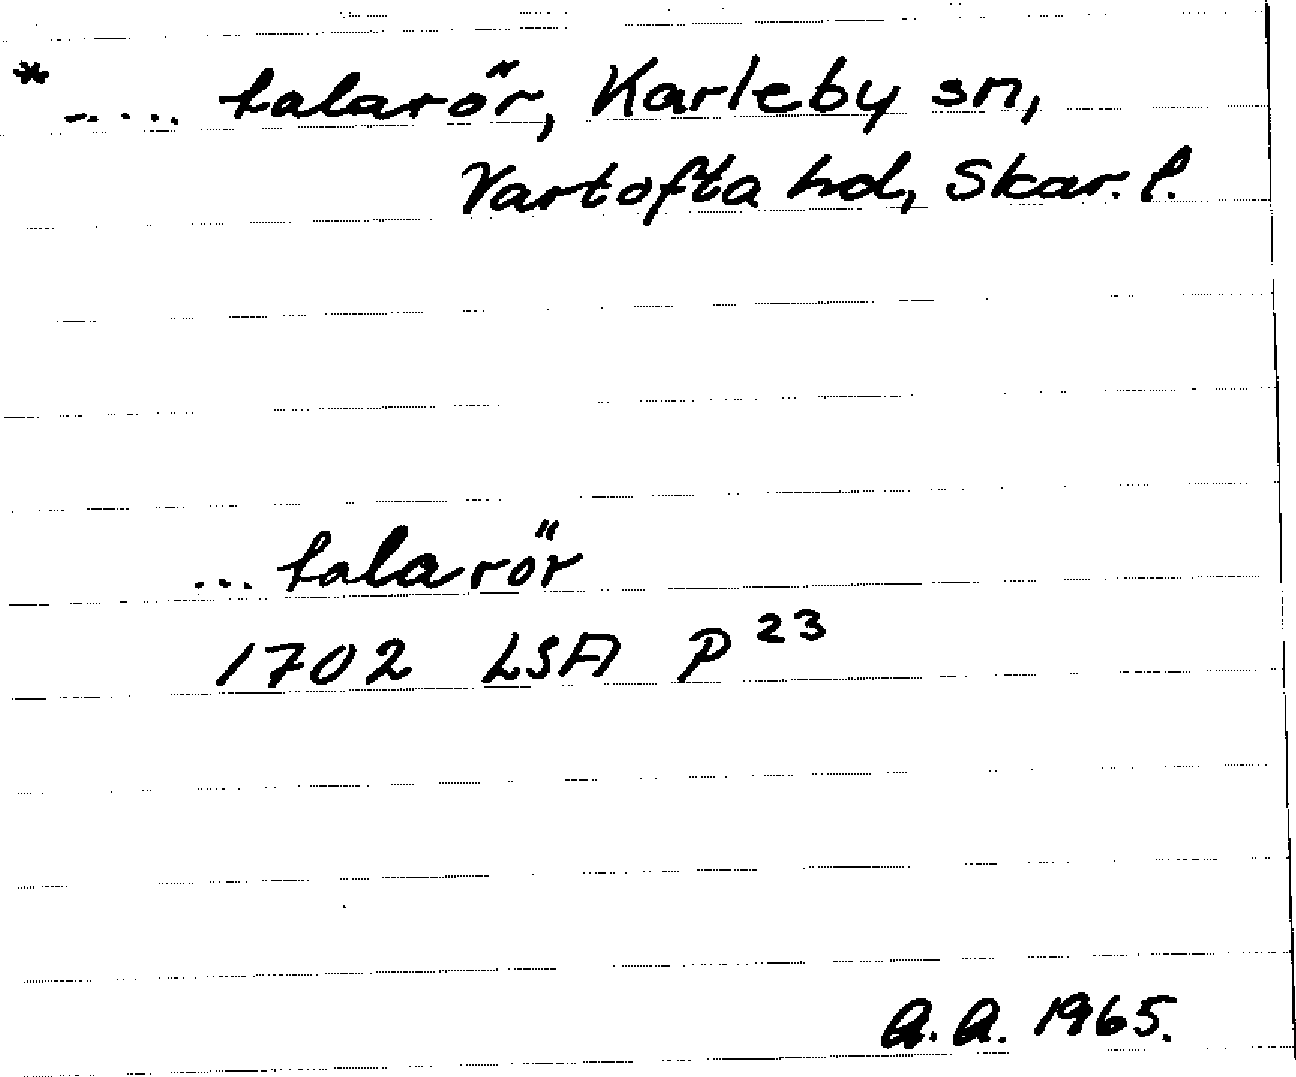 * ..... talarör, Karleby sn,
Vartofta hd, Skar. l.
... talarör
1702 LSA P 23
A. A. 1965.